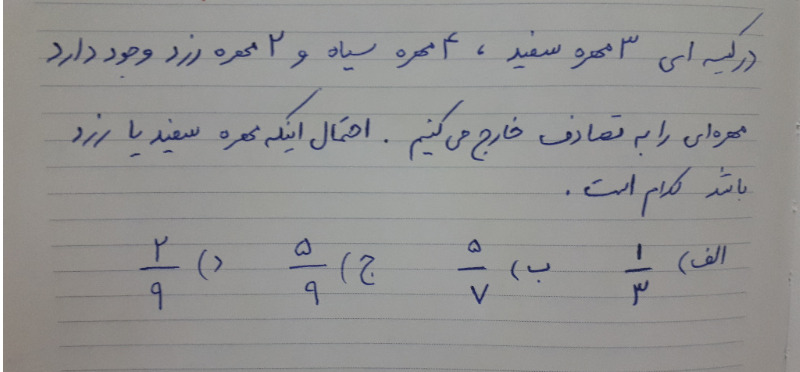 در کیسه ای ۳ مهره سفید ، ۴ مهره سیاه و ۲ مهره زرد وجود دارد
مهره‌ای را به تصادف خارج می‌کنیم . احتمال اینکه مهره سفید یا زرد
باشد کدام است .
الف) ۱/۳ ب) ۵/۷ ج) ۵/۹ د) ۲/۹